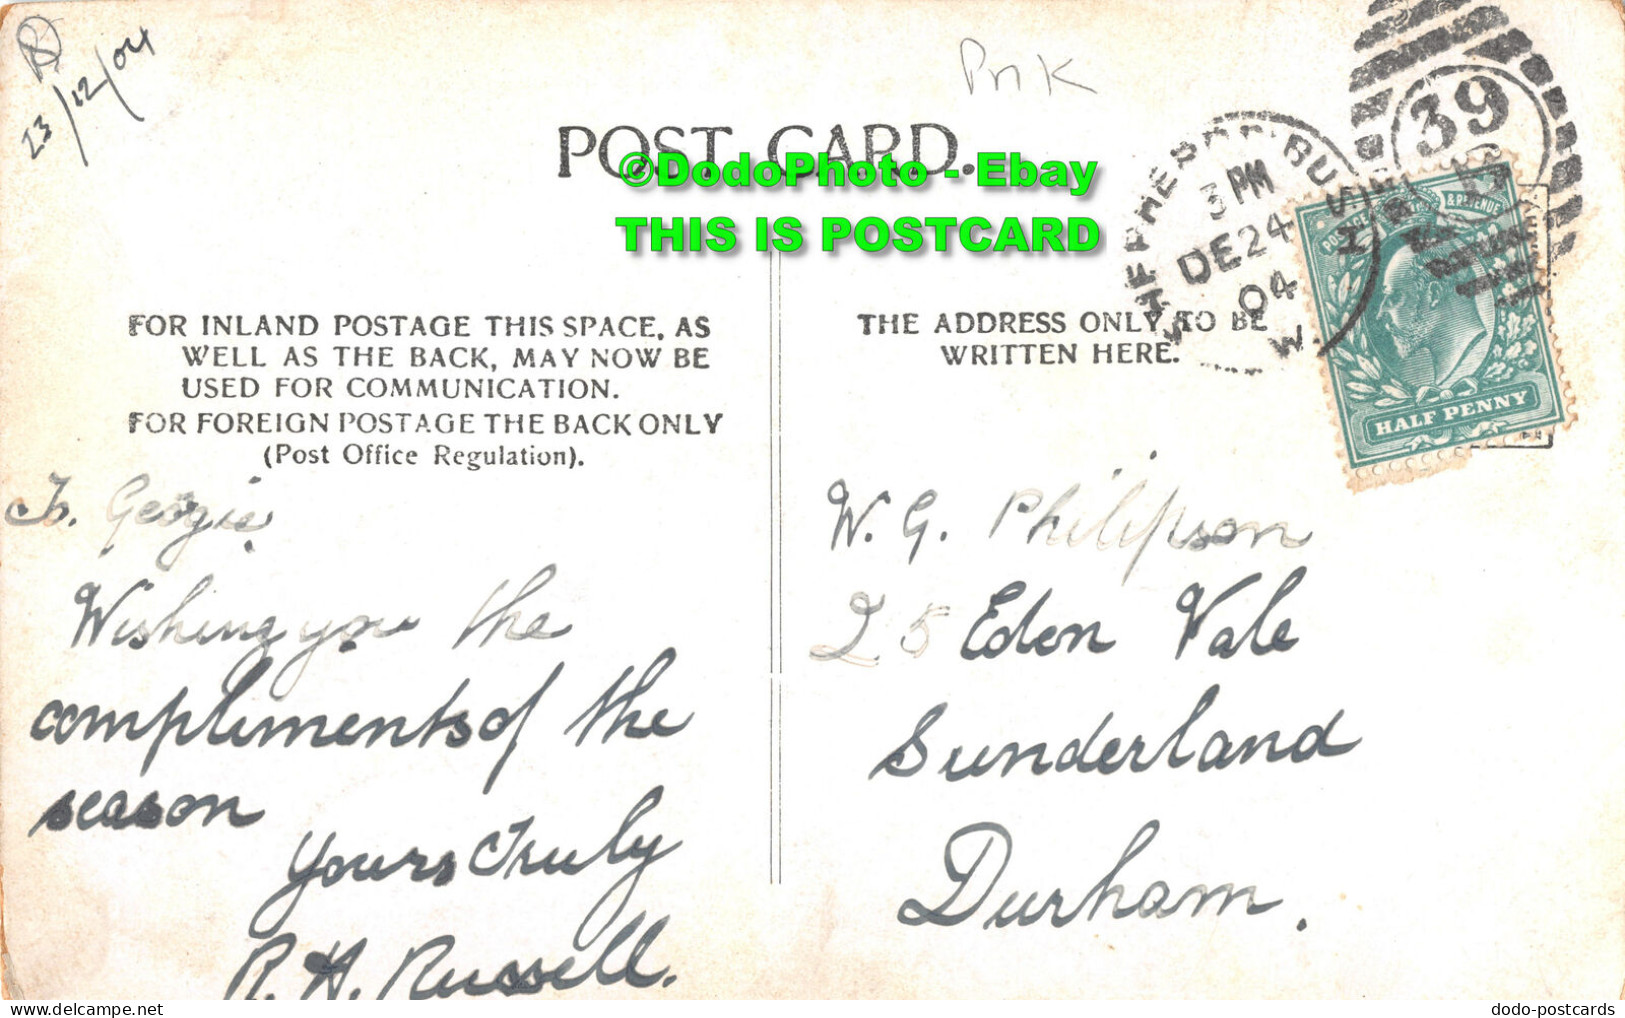 23/12/04
POST CARD.
©DodoPhoto - Ebay
THIS IS POSTCARD
SHEPHERD'S BUSH
3 PM
DE 24
04
W.
39
POSTAGE & REVENUE
HALF PENNY
FOR INLAND POSTAGE THIS SPACE, AS
WELL AS THE BACK, MAY NOW BE
USED FOR COMMUNICATION.
FOR FOREIGN POSTAGE THE BACK ONLY
(Post Office Regulation).
THE ADDRESS ONLY TO BE
WRITTEN HERE.
To. Georgie.
Wishing you the
compliments of the
season
Yours Truly
R. H. Russell.
W. G. Philipson
25 Eden Vale
Sunderland
Durham.
dodo-postcards